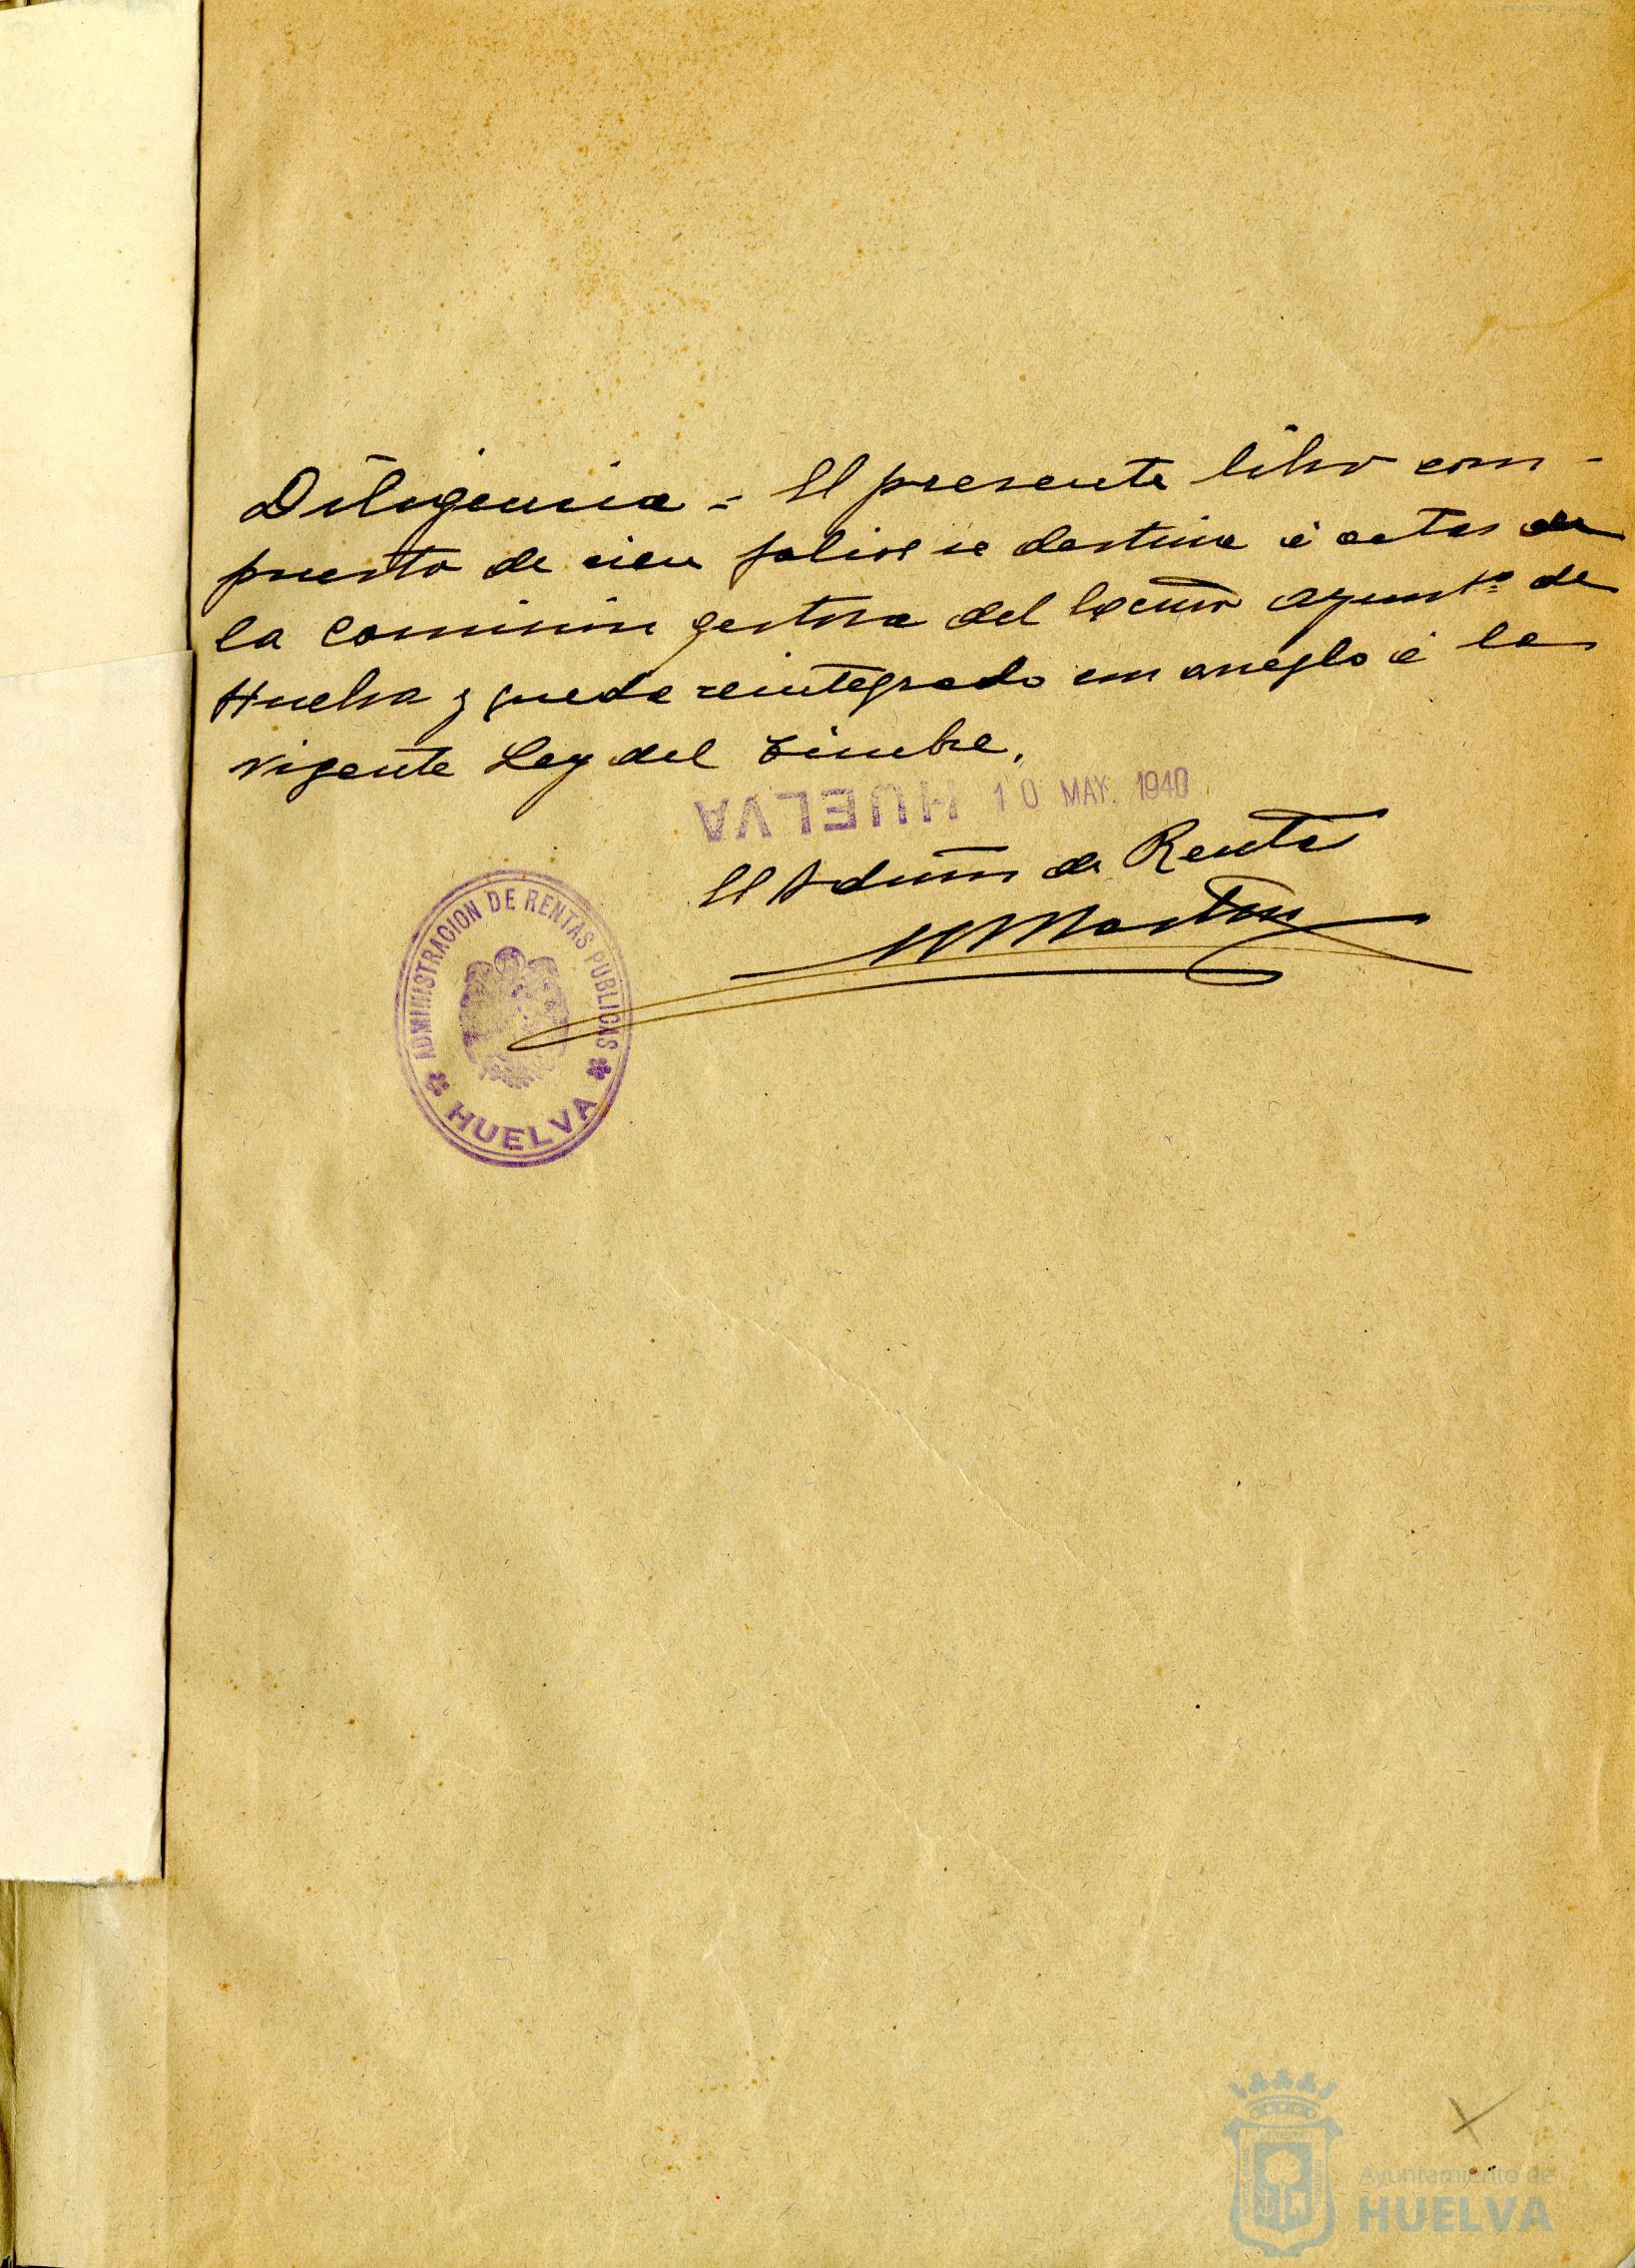 Diligencia = El presente libro com-
puesto de cien folios se destina á actas de
la Comision gestora del Excmo Ayuntº de
Huelva y queda reintegrado con arreglo á la
vigente Ley del Timbre.
HUELVA 10 MAY. 1940
El Admor de Rentas
ADMINISTRACION DE RENTAS PUBLICAS
HUELVA
Ayuntamiento de
HUELVA